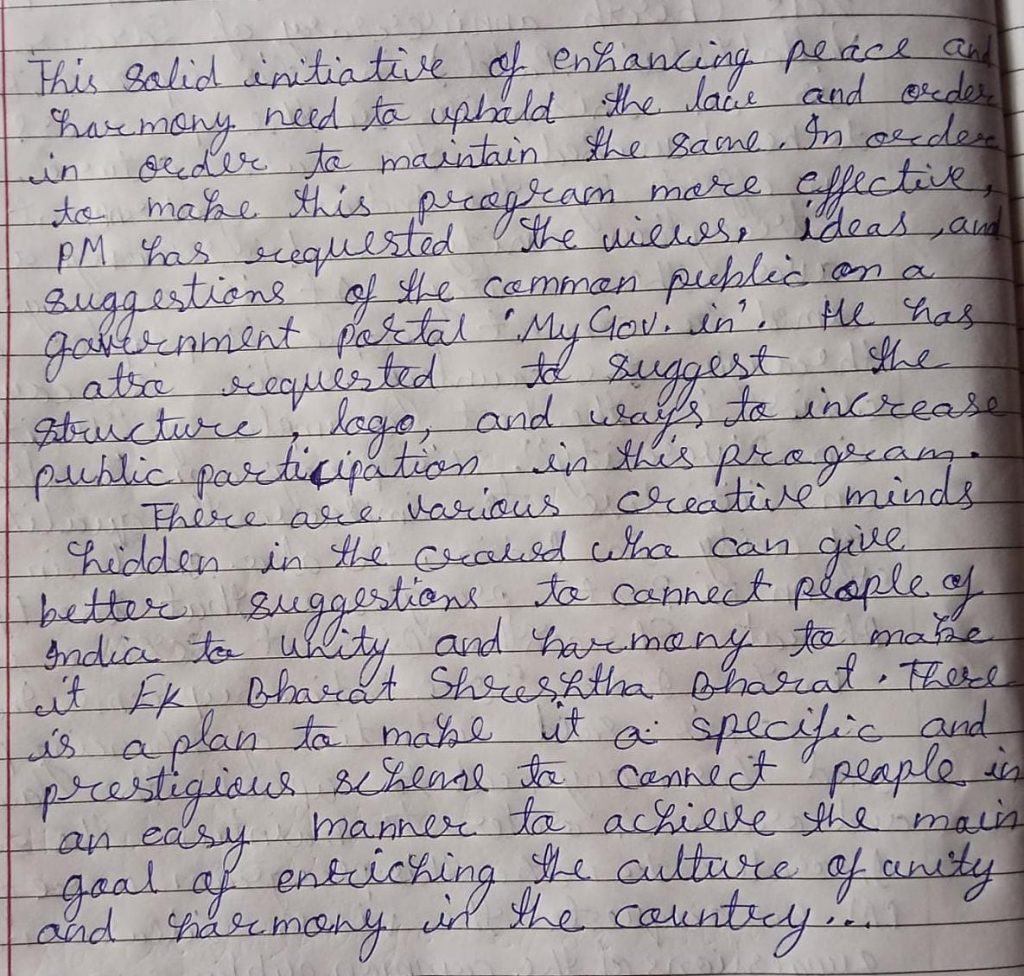 This solid initiative of enhancing peace and
harmony need to uphold the law and order
in order to maintain the same. In order
to make this program more effective,
PM has requested the views, ideas, and
suggestions of the common public on a
government portal 'MyGov.in'. He has
also requested to suggest the
structure, logo, and ways to increase
public participation in this program.
There are various creative minds
hidden in the crowd who can give
better suggestions to connect people of
India to unity and harmony to make
it Ek Bharat Shreshtha Bharat. There
is a plan to make it a specific and
prestigious scheme to connect people in
an easy manner to achieve the main
goal of enriching the culture of unity
and harmony in the country...